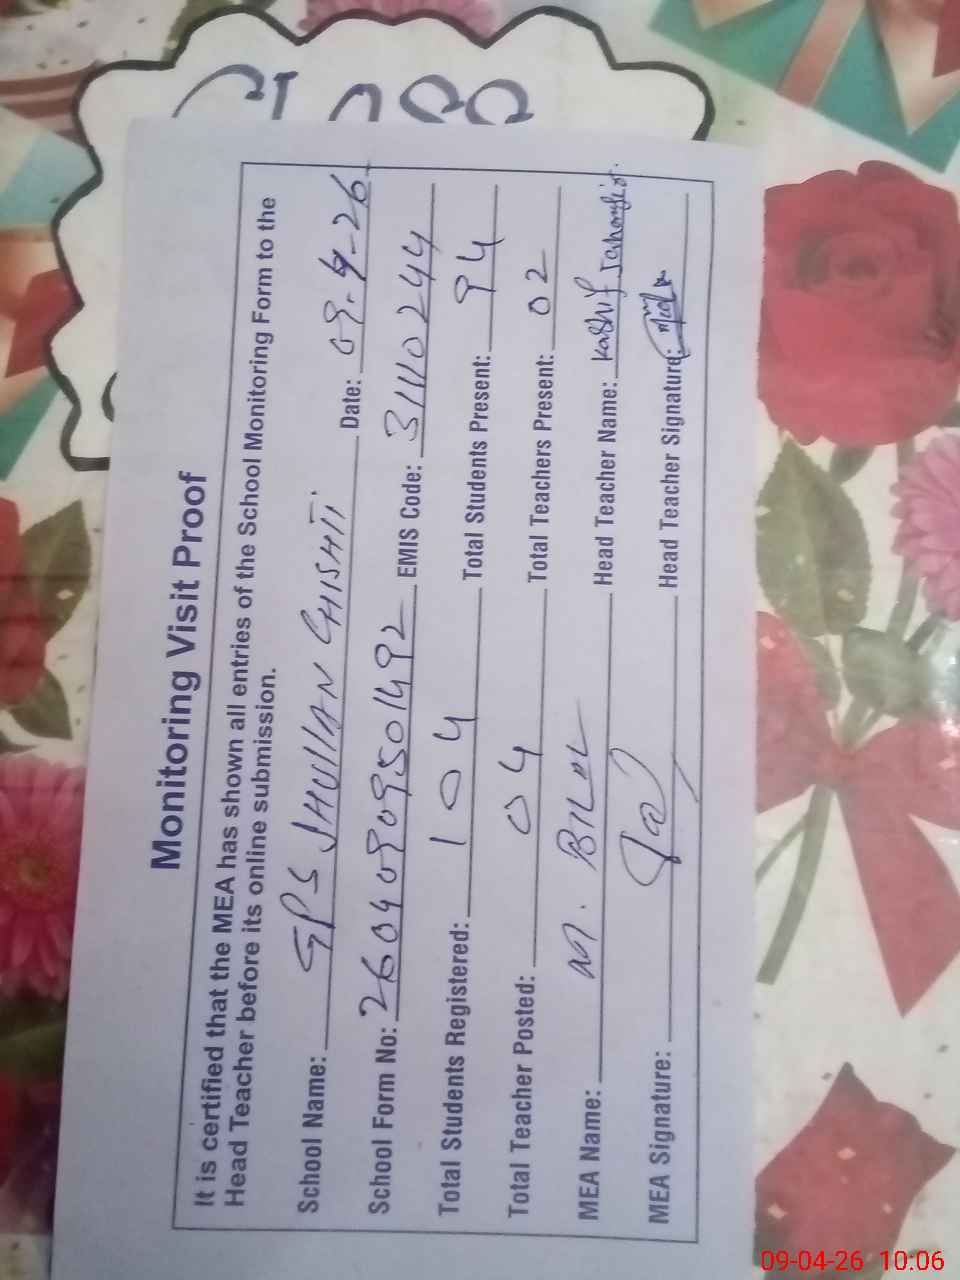 Monitoring Visit Proof
It is certified that the MEA has shown all entries of the School Monitoring Form to the
Head Teacher before its online submission.
School Name: GPS JHULLAN CHISHTI. Date: 09-4-26
School Form No: 26040909501492 EMIS Code: 31110244
Total Students Registered: 104 Total Students Present: 94
Total Teacher Posted: 04 Total Teachers Present: 02
MEA Name: M. BILAL Head Teacher Name: Kashif Jahangir
MEA Signature: Head Teacher Signature:
09-04-26 10:06